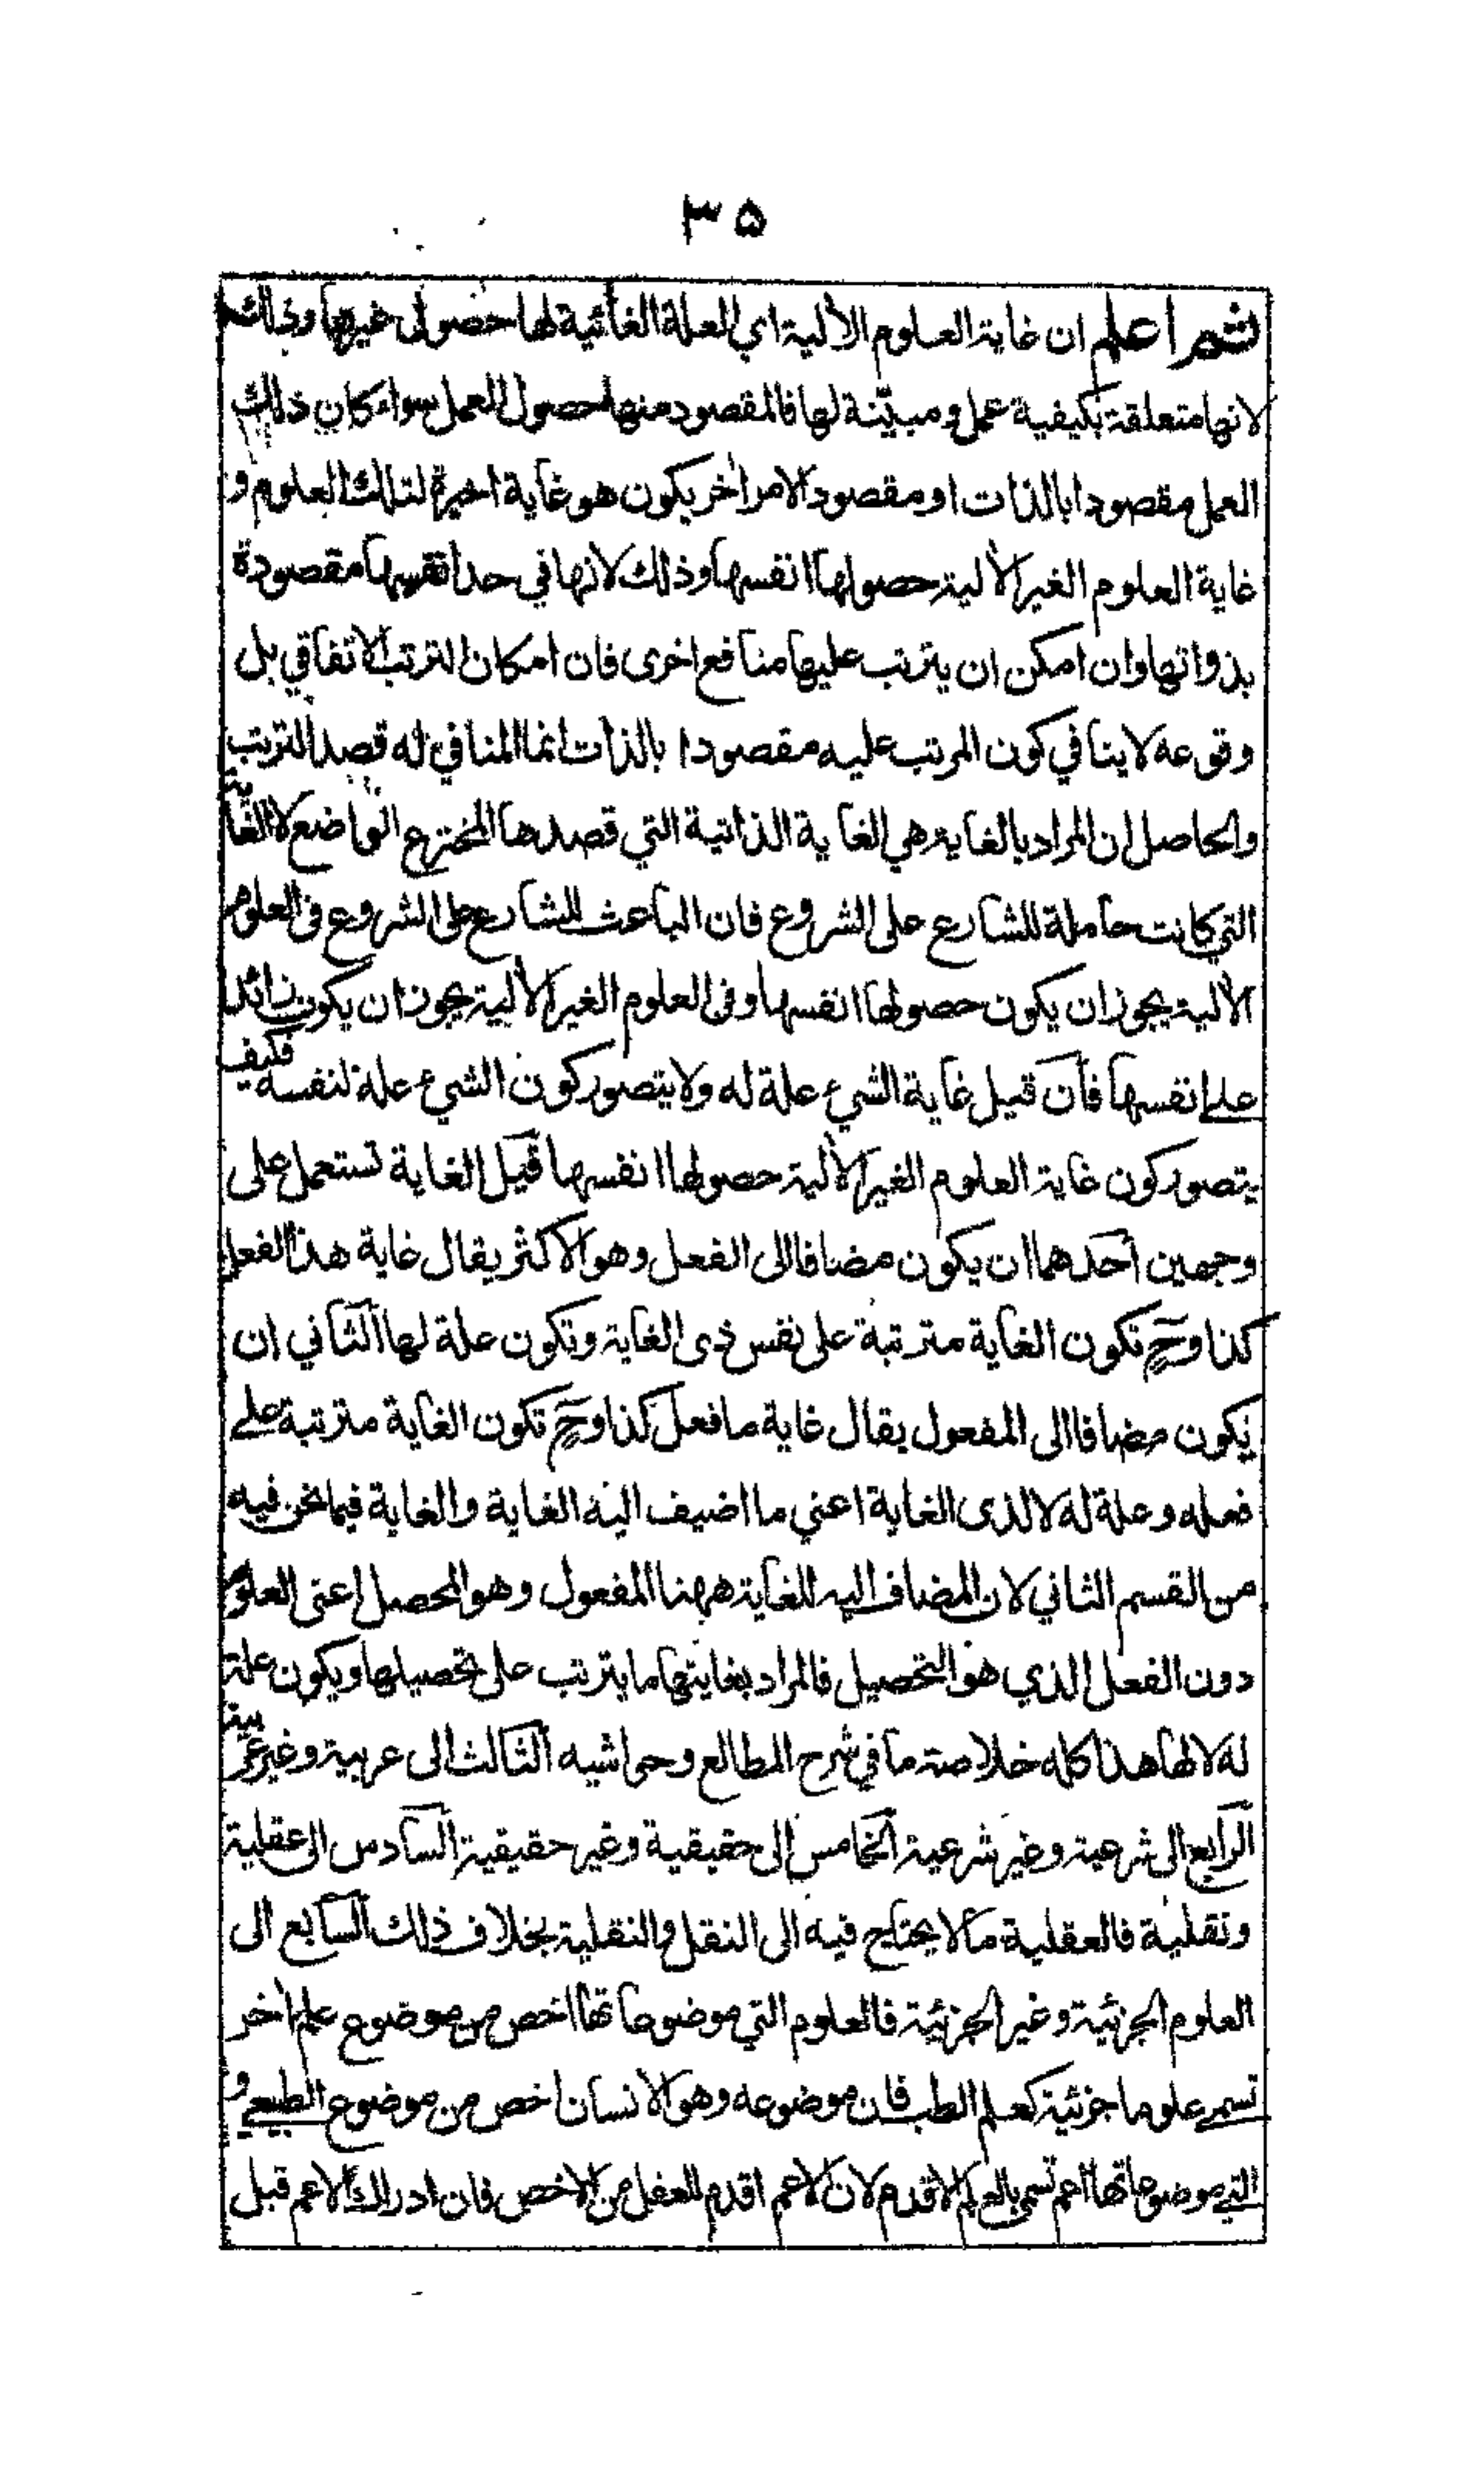 ٣٥
ثم اعلم ان غاية العلوم الآلية اي العلة الغائية لها حصول غيرها وذلك
لانها متعلقة بكيفية عمل ومبيّنة لها فالمقصود منها حصول العمل سواء كان ذلك
العمل مقصودا بالذات او مقصودا لامر آخر يكون هو غاية اخيرة لتلك العلوم و
غاية العلوم الغير الآلية حصولها انفسها وذلك لانها في حد انفسها مقصودة
بذواتها وان امكن ان يترتب عليها منافع اخرى فان امكان الترتب الاتفاقي بل
وقوعه لا ينافي كون المرتب عليه مقصودا بالذات انما المنافي له قصد الترتب
والحاصل ان المراد بالغاية هي الغاية الذاتية التي قصدها المخترع الواضع لا الغاية
التي كانت حاملة للشارع على الشروع فان الباعث للشارع على الشروع في العلوم
الآلية يجوز ان يكون حصولها انفسها وفي العلوم الغير الآلية يجوز ان يكون زائدا
على انفسها فان قيل غاية الشيء علة له ولا يتصور كون الشيء علة لنفسه فكيف
يتصور كون غاية العلوم الغير الآلية حصولها انفسها قيل الغاية تستعمل على
وجهين احدهما ان يكون مضافا الى الفعل وهو الاكثر يقال غاية هذا الفعل
كذا وح تكون الغاية مترتبة على نفس ذى الغاية وتكون علة لها الثاني ان
يكون مضافا الى المفعول يقال غاية ما فعل كذا وح تكون الغاية مترتبة على
فعله وعلة له لا لذى الغاية اعني ما اضيف اليه الغاية والغاية فيما نحن فيه
من القسم الثاني لان المضاف اليه للغاية ههنا المفعول وهو المحصل اعنى العلوم
دون الفعل الذي هو التحصيل فالمراد بغايتها ما يترتب على تحصيلها ويكون علة
له لا لها هذا كله خلاصة ما في شرح المطالع وحواشيه الثالث الى عربية وغير عربية
الرابع الى شرعية وغير شرعية الخامس الى حقيقية وغير حقيقية السادس الى عقلية
ونقلية فالعقلية ما لا يحتاج فيه الى النقل والنقلية بخلاف ذلك السابع الى
العلوم الجزئية وغير الجزئية فالعلوم التي موضوعاتها اخص من موضوع علم آخر
تسمى علوما جزئية كعلم الطب فان موضوعه وهو الانسان اخص من موضوع الطبيعي و
التي موضوعاتها اعم تسمى بالعلم الاقدم لان الاعم اقدم للعقل من الاخص فان ادراك الاعم قبل